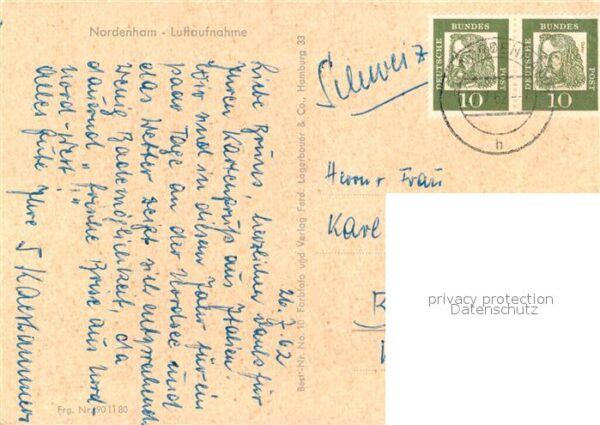 Nordenham - Luftaufnahme
26. 7. 62
Liebe Bruns, herzlichen Dank für
Ihren Kartengruß aus Italien.
Wir sind in diesem Jahr für ein
paar Tage an der Nordsee und
das Wetter zeigt sich entsprechend
wenig Bademöglichkeit, da
dauernd „frische Brise aus Nord-
Nord-West".
Alles Gute Ihre
Frg. Nr. 901180
Best-Nr. No. 10 Farbfoto und Verlag Ferd. Lagerbauer & Co., Hamburg 33
Schweiz
DEUTSCHE BUNDES POST
10
DEUTSCHE BUNDES POST
10
h
Herrn + Frau
Karl
privacy protection
Datenschutz